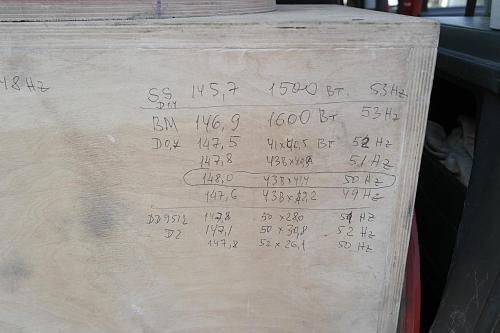 48Hz
SS 145,7 1500 Вт. 53Hz
D1,1
BM 146,9 1600 Вт 53Hz
D0,4 147,5 41×40,5 Вт 52 Hz
147,8 43В×40,8 51 Hz
148,0 43В×41,4 50 Hz
147,6 43В×42,2 49 Hz
DD9512 147,8 50×28,0 51 Hz
D2 147,1 50×30,8 52 Hz
147,8 52×26,1 50 Hz